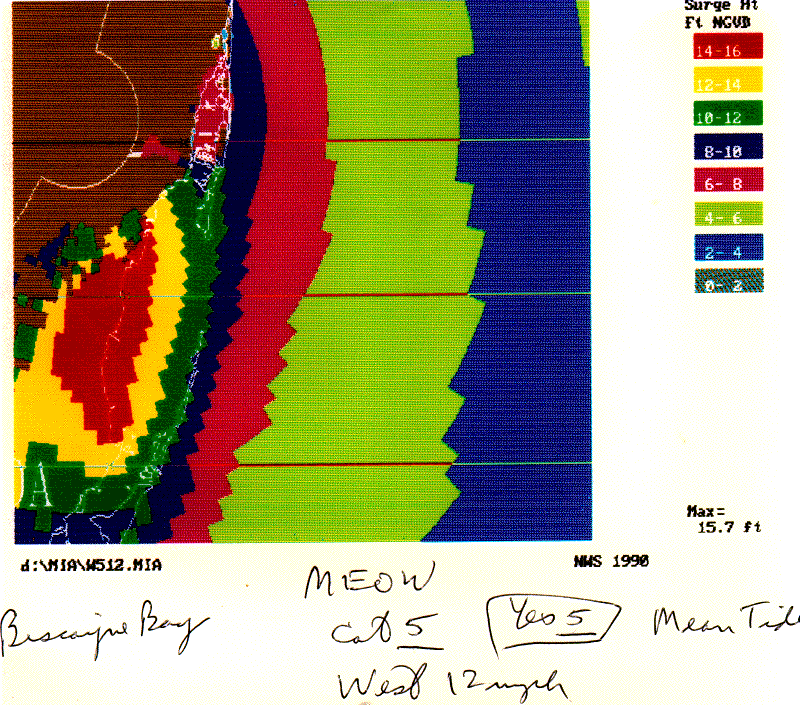 Surge Ht
Ft NGVD
14-16
12-14
10-12
8-10
6- 8
4- 6
2- 4
0- 2
A
Max=
15.7 ft
d:\MIA\W512.MIA
NWS 1990
MEOW
Biscayne Bay
Cat 5
Yes 5
Mean Tide
West 12 mph